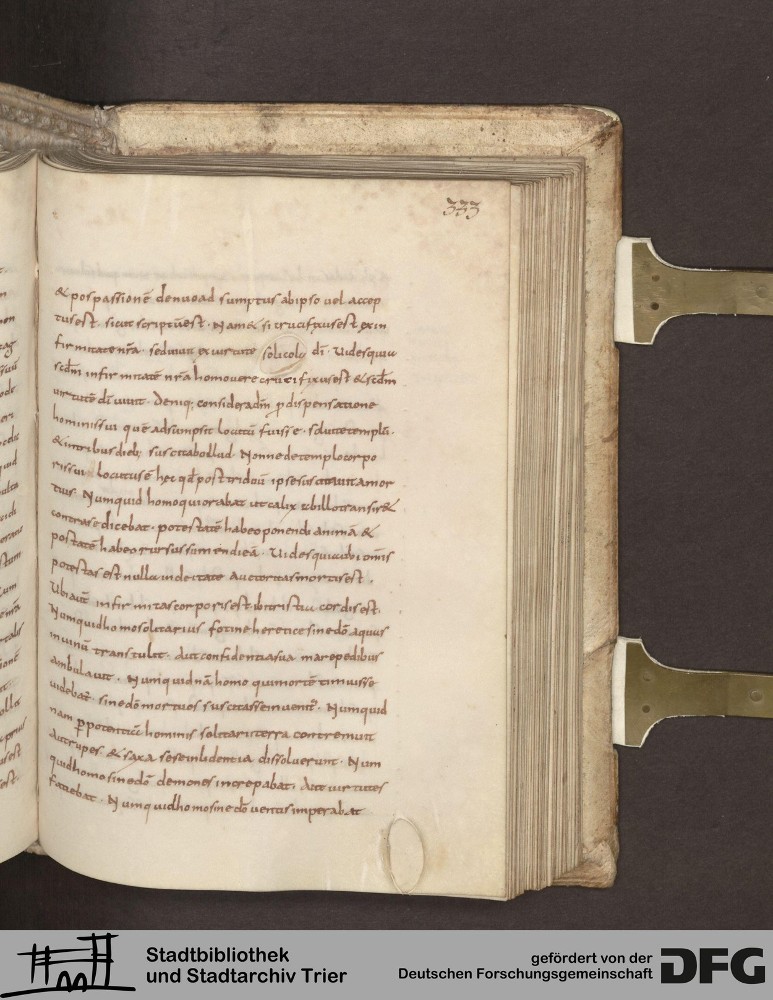 333
& pos passionē denuo ad sumptus ab ipso uel accep
tus est. sicut scriptū est. Nam & si crucifixus est ex in
firmitate nr̄a. sed uiuit ex uirtute di. Uides quia
scdm̄ infirmitatē nr̄a homo uere crucifixus est & scdm̄
uirtutē di uiuit. Deniq; p dispensatione
hominis sui quē adsumpsit locutū fuisse. soluite templū.
& in tribus dieb; suscitabo illud. Nonne de templo corpo
ris sui locutus ē post triduū ipse
tuis. Numquid homo qui orabat ut calix ab illo transir&
contra se dicebat. potestatē habeo ponendi animā &
postatē habeo rursus sumendi eā. Uides quia ubi omīs
potestas est nulla in deitate auctoritas mortis est.
Ubi aut̄ infirmitas corporis est. ibi tristia cordis est.
Numquid homo solitarius fotine heretice sine dō aquas
in uinū transtulit. Aut confidentia sua mare pedibus
ambulauit. Numquid nā homo qui mortē timuisse
uidebat̄. sine dō mortuos suscitasse inuenit̄. Numquid
nam p potentiā hominis solitarii terra contremuit
Aut rupes & saxa sese in uidentia dissoluerunt. Num
quid homo sine dō demones increpabat. Aut uirtutes
faciebat. Numquid homo sine dō uentis imperabat
Stadtbibliothek
und Stadtarchiv Trier
gefördert von der
Deutschen Forschungsgemeinschaft
DFG